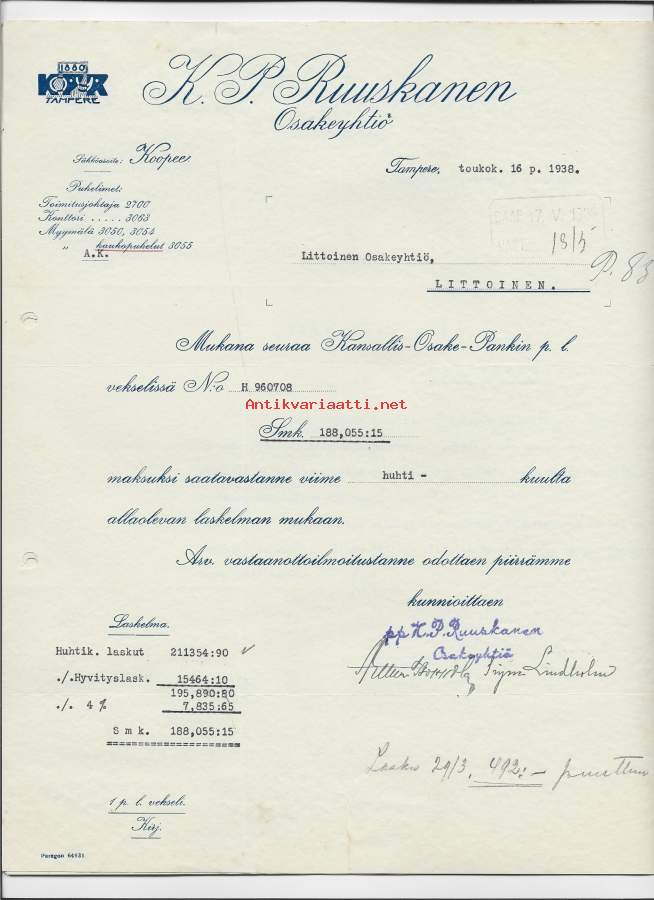 1880
TAMPERE
K. P. Ruuskanen
Osakeyhtiö
Sähköosoite: Koopee
Tampere, toukok. 16 p. 1938.
Puhelimet:
Toimitusjohtaja 2700
Konttori ..... 3063
Myymälä 3050, 3054
„ kaukopuhelut 3055
A.K.
18/5
Littoinen Osakeyhtiö,
P. 83
LITTOINEN.
Mukana seuraa Kansallis-Osake-Pankin p. l.
vekselissä N:o H 960708
Antikvariaatti.net
Smk. 188,055:15
maksuksi saatavastanne viime huhti - kuulta
allaolevan laskelman mukaan.
Arv. vastaanottoilmoitustanne odottaen piirrämme
kunnioittaen
pp K.P. Ruuskanen
Osakeyhtiö
Lindholm
Laskelma.
Huhtik. laskut 211354:90
./.Hyvityslask. 15464:10
195,890:80
./. 4 % 7,835:65
S m k. 188,055:15
Lasku 29/3. 492:- puuttuu
1 p. l. vekseli.
Kirj.
Paragon 64831